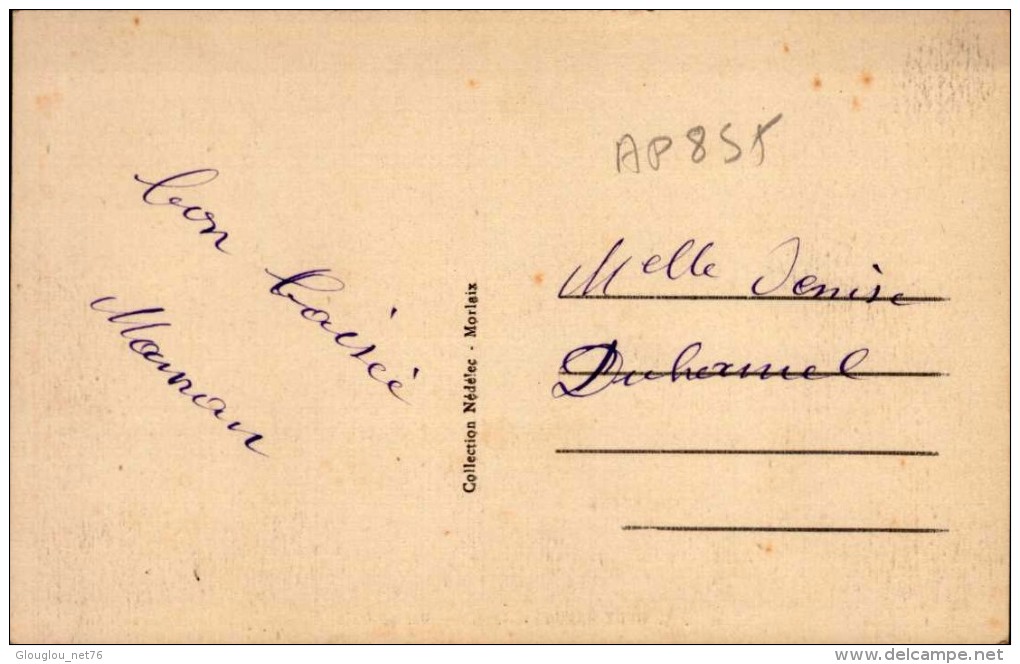 AP85T
bon baisée
Maman
Collection Nédélec - Morlaix
Melle Denise
Duhamel
Glouglou_net76
delcampe.net